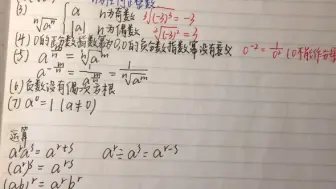 (3)
ⁿ√aⁿ { a n为奇数 ³√(-3)³ = -3
|a| n为偶数 ²√(-3)² = 3
(4) 0的正分数指数幂为0, 0的负分数指数幂没有意义 0⁻² = 1/0²
(5) a^(m/n) = ⁿ√a^m
a^(-m/n) = 1/a^(m/n) = 1/ⁿ√a^m
(6) 负数没有偶次方根
(7) a⁰ = 1 (a≠0)
运算
aʳaˢ = aʳ⁺ˢ aʳ÷aˢ = aʳ⁻ˢ
(aʳ)ˢ = aʳˢ
(ab)ʳ = aʳbʳ